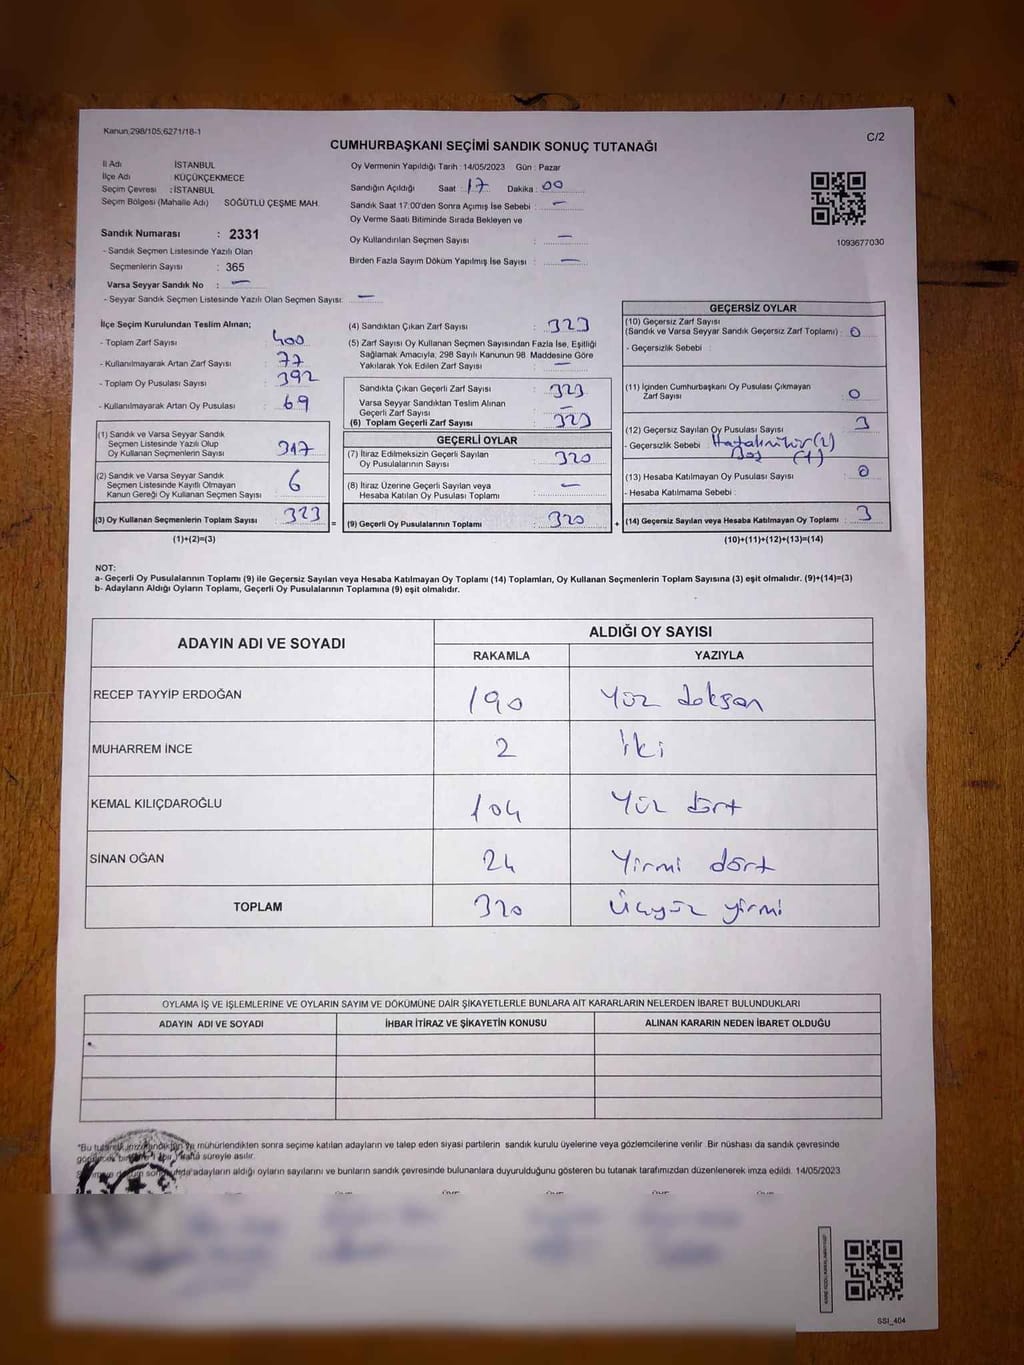 Kanun;298/105;6271/18-1
C/2
CUMHURBAŞKANI SEÇİMİ SANDIK SONUÇ TUTANAĞI
İl Adı İSTANBUL
İlçe Adı : KÜÇÜKÇEKMECE
Seçim Çevresi : İSTANBUL
Seçim Bölgesi (Mahalle Adı) SÖĞÜTLÜ ÇEŞME MAH.
Sandık Numarası : 2331
- Sandık Seçmen Listesinde Yazılı Olan
Seçmenlerin Sayısı : 365
Varsa Seyyar Sandık No : —
- Seyyar Sandık Seçmen Listesinde Yazılı Olan Seçmen Sayısı: —
Oy Vermenin Yapıldığı Tarih : 14/05/2023 Gün : Pazar
Sandığın Açıldığı Saat : 17 Dakika : 00
Sandık Saat 17:00'den Sonra Açımış İse Sebebi : —
Oy Verme Saati Bitiminde Sırada Bekleyen ve
Oy Kullandırılan Seçmen Sayısı : —
Birden Fazla Sayım Döküm Yapılmış İse Sayısı : —
1093677030
İlçe Seçim Kurulundan Teslim Alınan;
- Toplam Zarf Sayısı : 400
- Kullanılmayarak Artan Zarf Sayısı : 77
- Toplam Oy Pusulası Sayısı : 392
- Kullanılmayarak Artan Oy Pusulası : 69
(1) Sandık ve Varsa Seyyar Sandık
Seçmen Listesinde Yazılı Olup
Oy Kullanan Seçmenlerin Sayısı : 317
(2) Sandık ve Varsa Seyyar Sandık
Seçmen Listesinde Kayıtlı Olmayan
Kanun Gereği Oy Kullanan Seçmen Sayısı : 6
(3) Oy Kullanan Seçmenlerin Toplam Sayısı : 323
(1)+(2)=(3)
(4) Sandıktan Çıkan Zarf Sayısı : 323
(5) Zarf Sayısı Oy Kullanan Seçmen Sayısından Fazla İse, Eşitliği
Sağlamak Amacıyla, 298 Sayılı Kanunun 98. Maddesine Göre
Yakılarak Yok Edilen Zarf Sayısı : —
Sandıkta Çıkan Geçerli Zarf Sayısı : 323
Varsa Seyyar Sandıktan Teslim Alınan
Geçerli Zarf Sayısı : —
(6) Toplam Geçerli Zarf Sayısı : 323
GEÇERLİ OYLAR
(7) İtiraz Edilmeksizin Geçerli Sayılan
Oy Pusulalarının Sayısı : 320
(8) İtiraz Üzerine Geçerli Sayılan veya
Hesaba Katılan Oy Pusulası Toplamı : —
= (9) Geçerli Oy Pusulalarının Toplamı : 320
GEÇERSİZ OYLAR
(10) Geçersiz Zarf Sayısı
(Sandık ve Varsa Seyyar Sandık Geçersiz Zarf Toplamı) : 0
- Geçersizlik Sebebi :
(11) İçinden Cumhurbaşkanı Oy Pusulası Çıkmayan
Zarf Sayısı : 0
(12) Geçersiz Sayılan Oy Pusulası Sayısı : 3
- Geçersizlik Sebebi : Hatalı mühür (2)
Boş (1)
(13) Hesaba Katılmayan Oy Pusulası Sayısı : 0
- Hesaba Katılmama Sebebi :
+ (14) Geçersiz Sayılan veya Hesaba Katılmayan Oy Toplamı : 3
(10)+(11)+(12)+(13)=(14)
NOT:
a- Geçerli Oy Pusulalarının Toplamı (9) ile Geçersiz Sayılan veya Hesaba Katılmayan Oy Toplamı (14) Toplamları, Oy Kullanan Seçmenlerin Toplam Sayısına (3) eşit olmalıdır. (9)+(14)=(3)
b- Adayların Aldığı Oyların Toplamı, Geçerli Oy Pusulalarının Toplamına (9) eşit olmalıdır.
ADAYIN ADI VE SOYADI ALDIĞI OY SAYISI
RAKAMLA YAZIYLA
RECEP TAYYİP ERDOĞAN 190 Yüz doksan
MUHARREM İNCE 2 İki
KEMAL KILIÇDAROĞLU 104 Yüz dört
SİNAN OĞAN 24 Yirmi dört
TOPLAM 320 Üçyüz yirmi
OYLAMA İŞ VE İŞLEMLERİNE VE OYLARIN SAYIM VE DÖKÜMÜNE DAİR ŞİKAYETLERLE BUNLARA AİT KARARLARIN NELERDEN İBARET BULUNDUKLARI
ADAYIN ADI VE SOYADI İHBAR İTİRAZ VE ŞİKAYETİN KONUSU ALINAN KARARIN NEDEN İBARET OLDUĞU
"Bu tutanak imzalandıktan ve mühürlendikten sonra seçime katılan adayların ve talep eden siyasi partilerin sandık kurulu üyelerine veya gözlemcilerine verilir. Bir nüshası da sandık çevresinde
hafta süreyle asılır.
adayların aldığı oyların sayılarını ve bunların sandık çevresinde bulunanlara duyurulduğunu gösteren bu tutanak tarafımızdan düzenlenerek imza edildi. 14/05/2023
SSİ_404